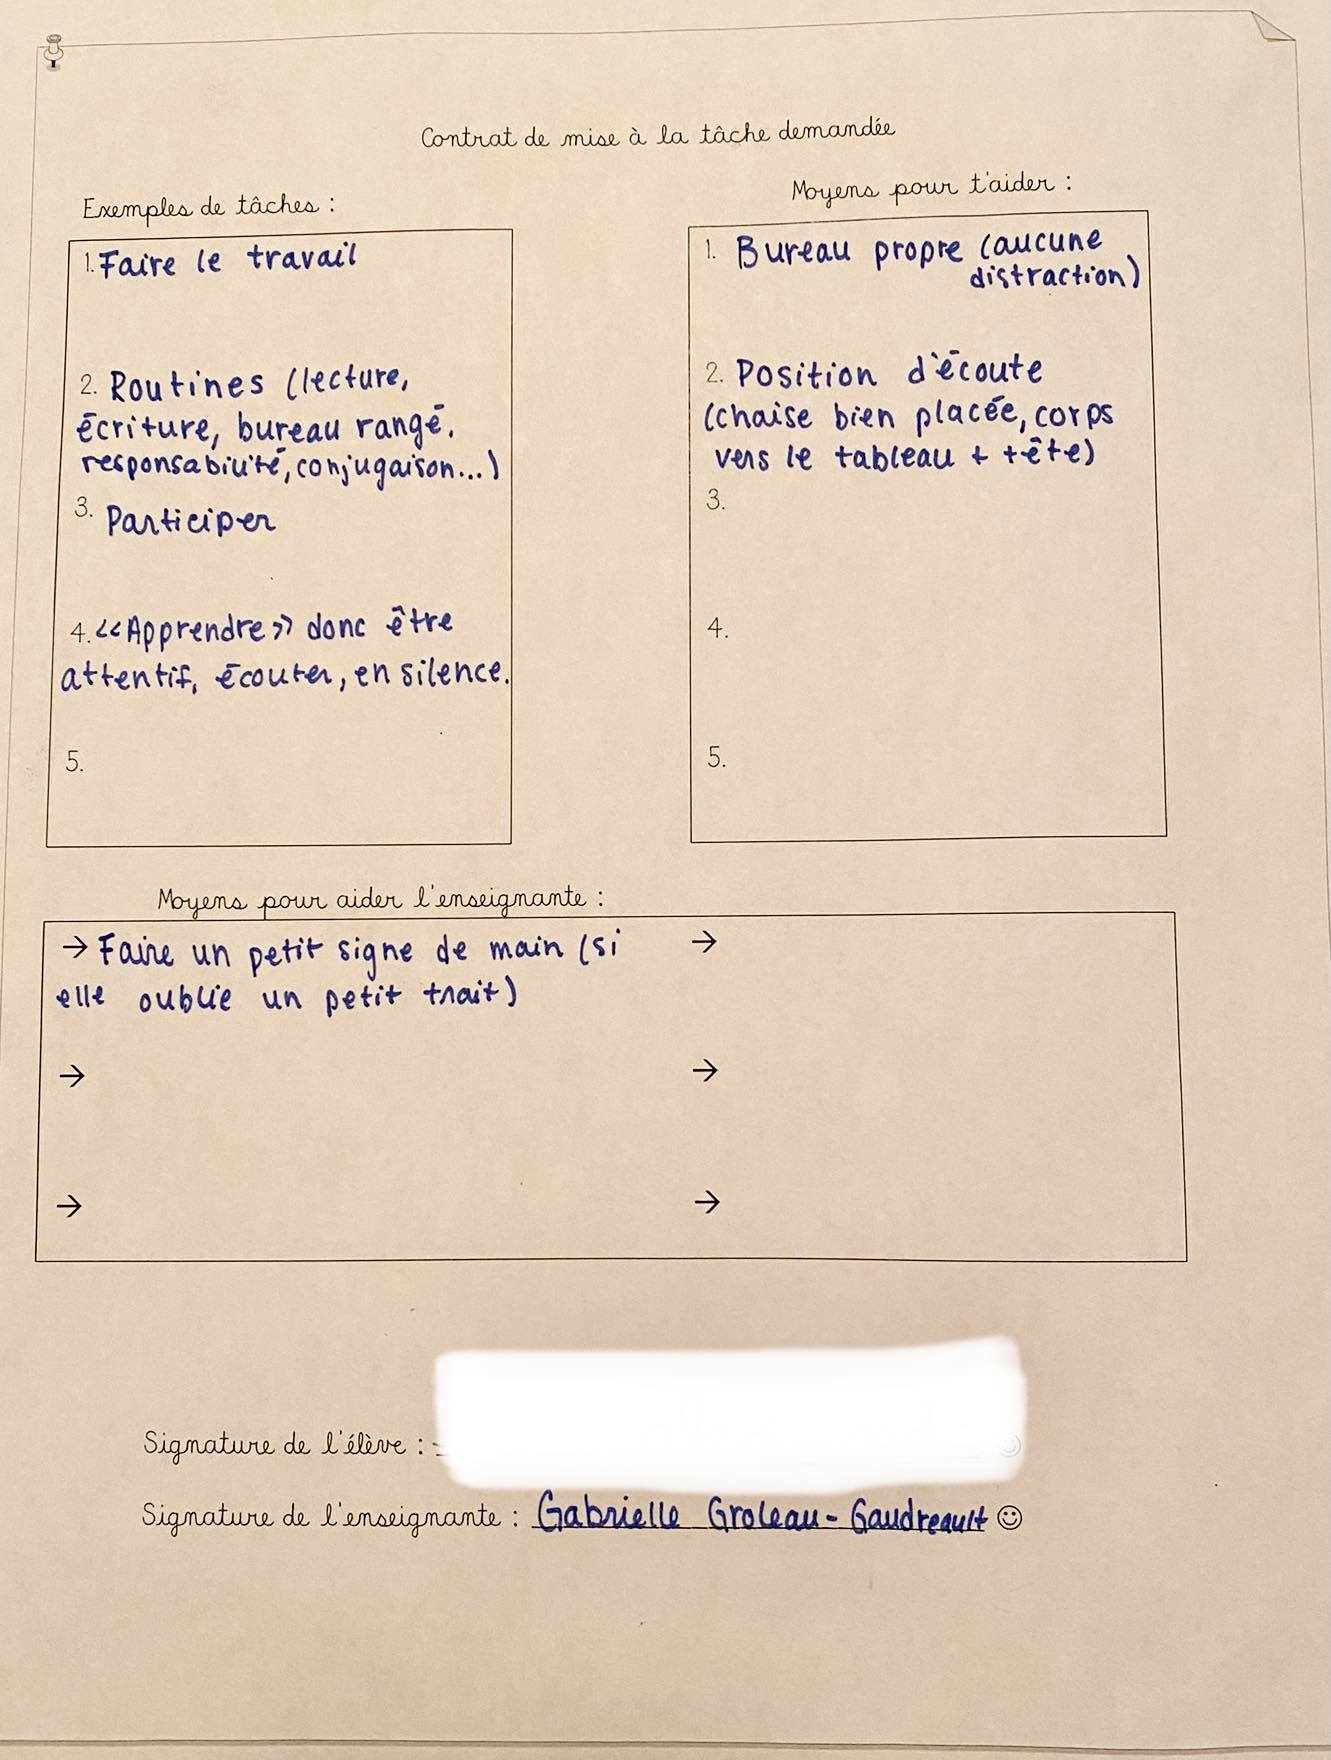 Contrat de mise à la tâche demandée
Exemples de tâches :
1. Faire le travail
2. Routines (lecture,
écriture, bureau rangé,
responsabilité, conjugaison...)
3. Participer
4. «Apprendre» donc être
attentif, écouter, en silence.
5.
Moyens pour t'aider :
1. Bureau propre (aucune
distraction)
2. Position d'écoute
(chaise bien placée, corps
vers le tableau + tête)
3.
4.
5.
Moyens pour aider l'enseignante :
→ Faire un petit signe de main (si
elle oublie un petit trait)
→
→
→
→
→
Signature de l'élève :
Signature de l'enseignante : Gabrielle Groleau-Gaudreault ☺